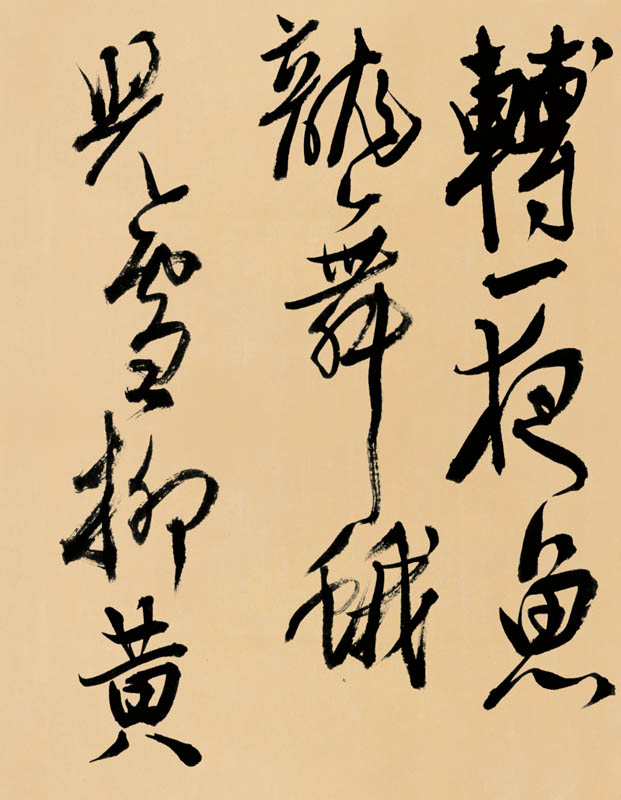 轉一夜魚
龍舞蛾
兒雪柳黄